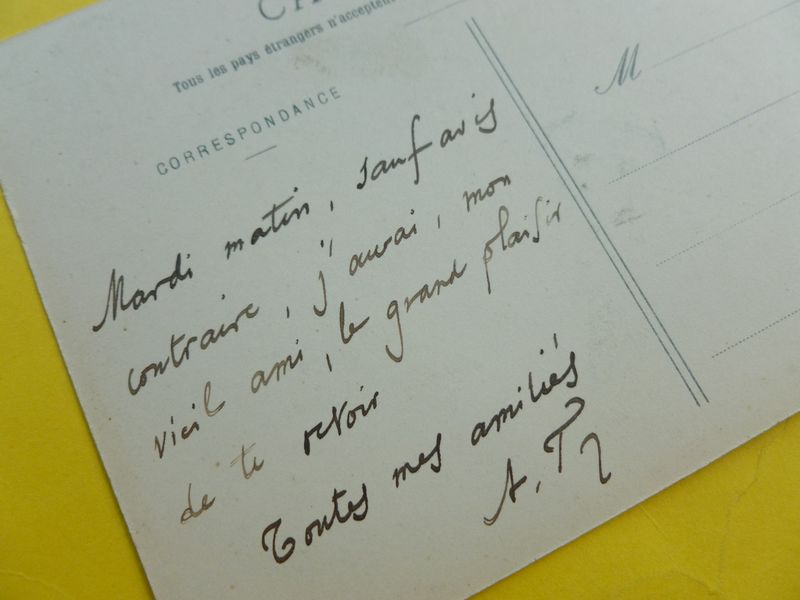 Tous les pays étrangers n'acceptent
CORRESPONDANCE
M
Mardi matin, sauf avis
contraire, j'aurai, mon
vieil ami, le grand plaisir
de te revoir
Toutes mes amitiés
A. T